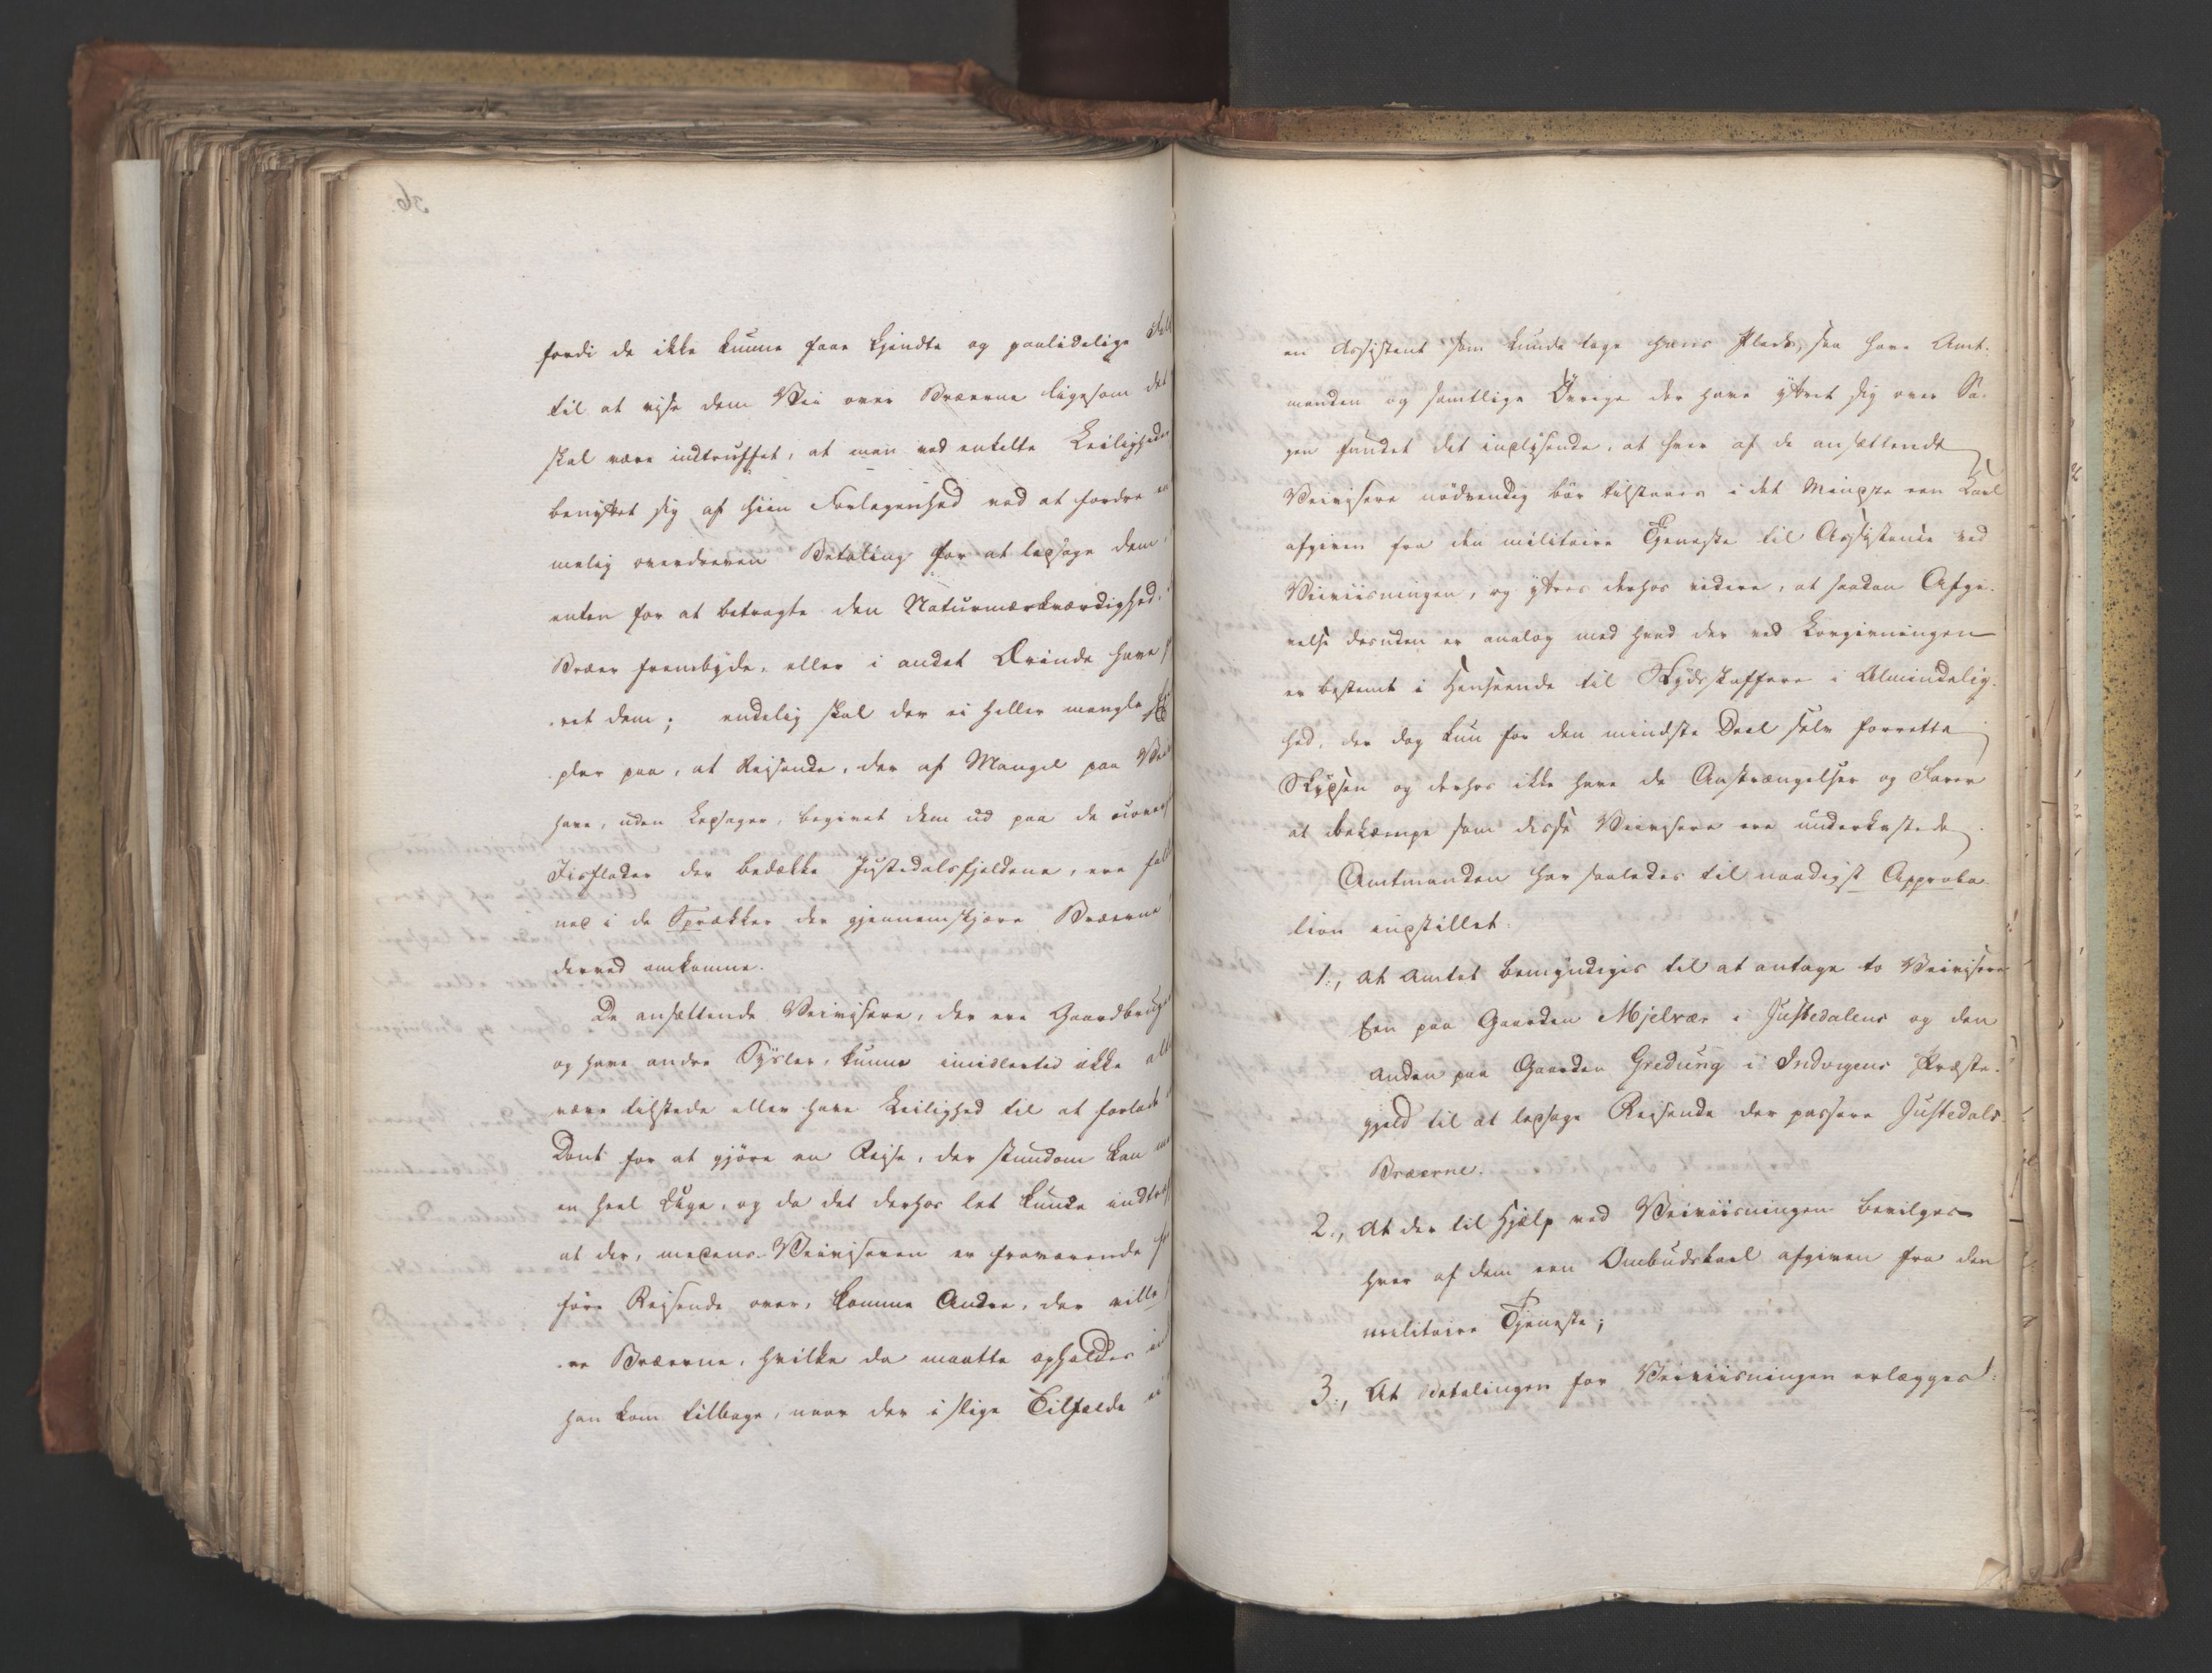 fordi de ikke kunne faae kjendte og paalidelige
til at vise dem Vei over Bræerne ligesom det
skal være indtruffet, at man ved enkelte Leiligheder
benyttet sig af hiin Forlegenhed ved at fordre en
melig overdreven Betaling for at ledsage dem,
enten for at betragte den Naturmærkværdighed,
Bræer frembyde, eller i andet Ærinde have
ret dem; endelig skal der ei heller mangle
pler paa, at Reisende, der af Mangel paa
have, uden Ledsager, begivet dem ud paa de
Iisflader der bedække Justedalsfjeldene, ere
ned i de Sprækker der gjennemskjære Bræerne
derved omkomne.
De ansættende Veivisere, der ere Gaardbruge
og have andre Sysler, kunne imidlertid ikke
være tilstede eller have Leilighed til at forlade
Dont for at gjøre en Reise, der stundom kan
en heel Uge, og da det derhos let kunde indtræf
at der, medens Veiviseren er fraværende
føre Reisende over, komme Andre, der ville
re Bræerne, hvilke da maatte opholdes
han kom tilbage, naar der i slige Tilfælde ei
en Assistent som kunde tage hans Plads, saa have Amt-
manden og samtlige Øvrige der have yttret sig over Sa-
gen fundet det indlysende, at hver af de ansættende
Veivisere nødvendig bør tilstaaes i det Mindste een Karl
afgiven fra den militaire Tjeneste til Assistence ved
Veiviisningen, og yttres derhos videre, at saadan Afgi-
velse desuden er analog med hvad der ved Lovgivningen
er bestemt i Henseende til Skydsskaffere i Almindelig-
hed, der dog kun for den mindste Deel selv forrette
Skydsen og derhos ikke have de Anstrængelser og Farer
at bekæmpe som disse Veivisere ere underkastede.
Amtmanden har saaledes til naadigst Approba-
tion indstillet:
1., At Amtet bemyndiges til at antage to Veivisere
Een paa Gaarden Mjelvær i Justedalens og den
Anden paa Gaarden Gredung i Indvigens Præste-
gjeld til at ledsage Reisende der passere Justedals-
Bræerne.
2., At der til Hjælp ved Veiviisningen bevilges
hver af dem een Ombudskarl afgiven fra den
militaire Tjeneste;
3., At Betalingen for Veiviisningen erlægges: